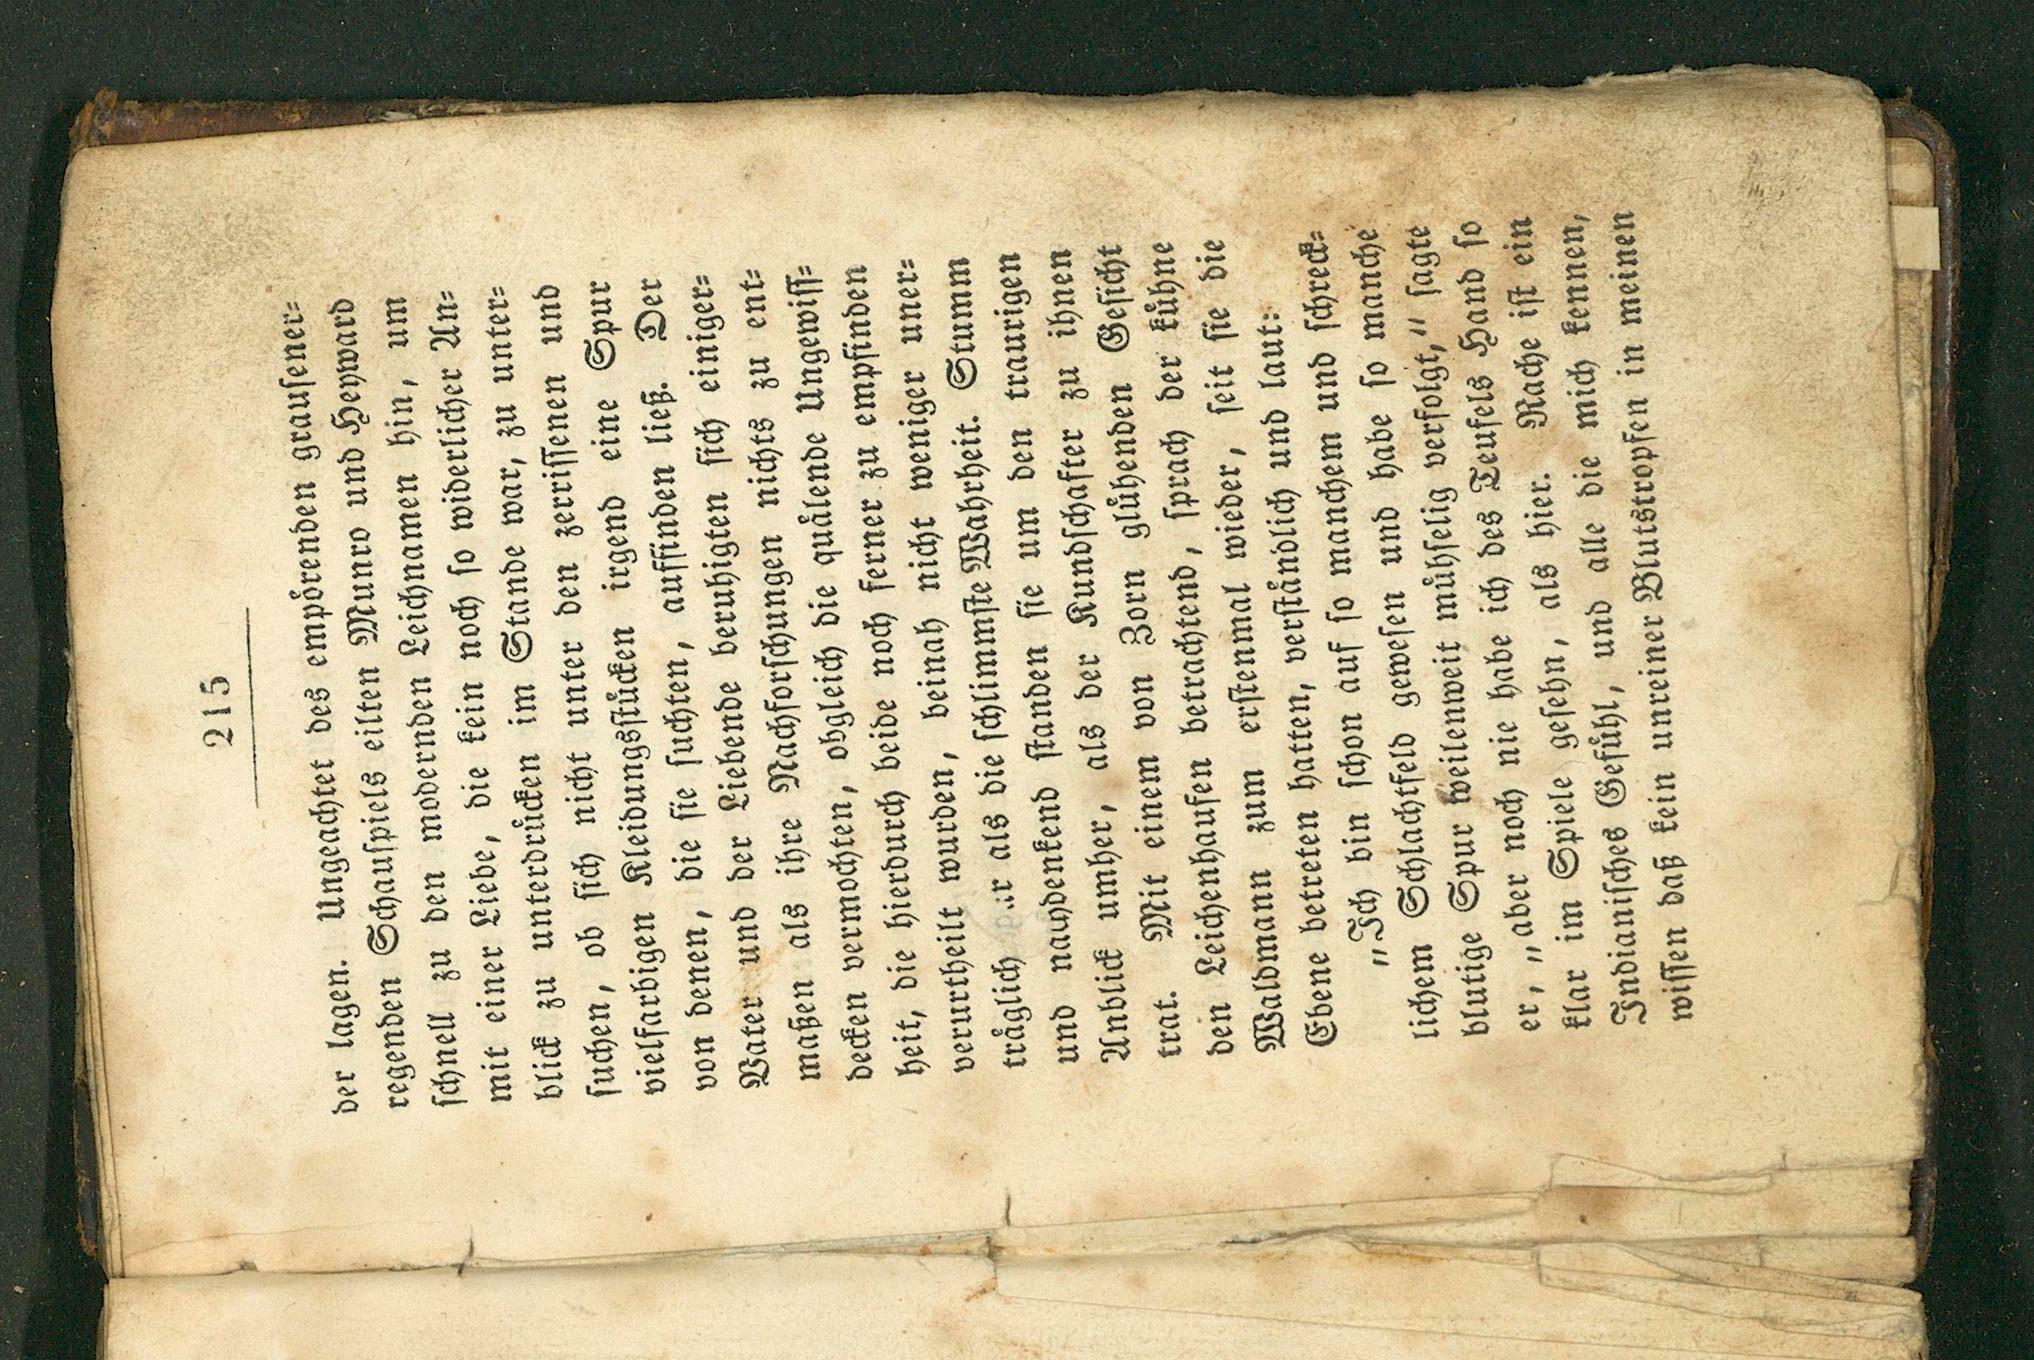 215
der lagen. Ungeachtet des empoͤrenden grauſener⸗
regenden Schauſpiels eilten Munro und Heyward
ſchnell zu den modernden Leichnamen hin, um
mit einer Liebe, die kein noch ſo widerlicher An⸗
blick zu unterdruͤcken im Stande war, zu unter⸗
ſuchen, ob ſich nicht unter den zerriſſenen und
vielfarbigen Kleidungsſtuͤcken irgend eine Spur
von denen, die ſie ſuchten, auffinden ließ. Der
Vater und der Liebende beruhigten ſich einiger⸗
maßen als ihre Nachforſchungen nichts zu ent⸗
decken vermochten, obgleich die quaͤlende Ungewiſſ⸗
heit, die hierdurch beide noch ferner zu empfinden
verurtheilt wurden, beinah nicht weniger uner⸗
traͤglich als die ſchlimmſte Wahrheit. Stumm
und nachdenkend ſtanden ſie um den traurigen
Anblick umher, als der Kundſchafter zu ihnen
trat. Mit einem von Zorn gluͤhenden Geſicht
den Leichenhaufen betrachtend, ſprach der kuͤhne
Waldmann zum erſtenmal wieder, ſeit ſie die
Ebene betreten hatten, verſtaͤndlich und laut:
„Ich bin ſchon auf ſo manchem und ſchreck⸗
lichem Schlachtfeld geweſen und habe ſo manche
blutige Spur weilenweit muͤhſelig verfolgt,“ ſagte
er, „aber noch nie habe ich des Teufels Hand ſo
klar im Spiele geſehn, als hier. Rache iſt ein
Indianiſches Gefuͤhl, und alle die mich kennen,
wiſſen daß kein unreiner Blutstropfen in meinen